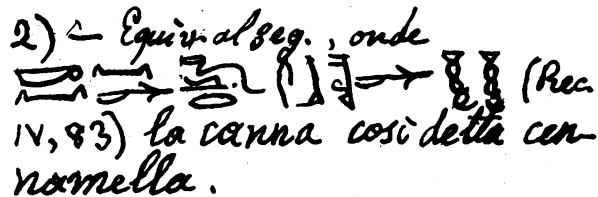 2) — Equiv. al seg., onde
(Rec.
IV, 83) la canna così detta cen-
namella.